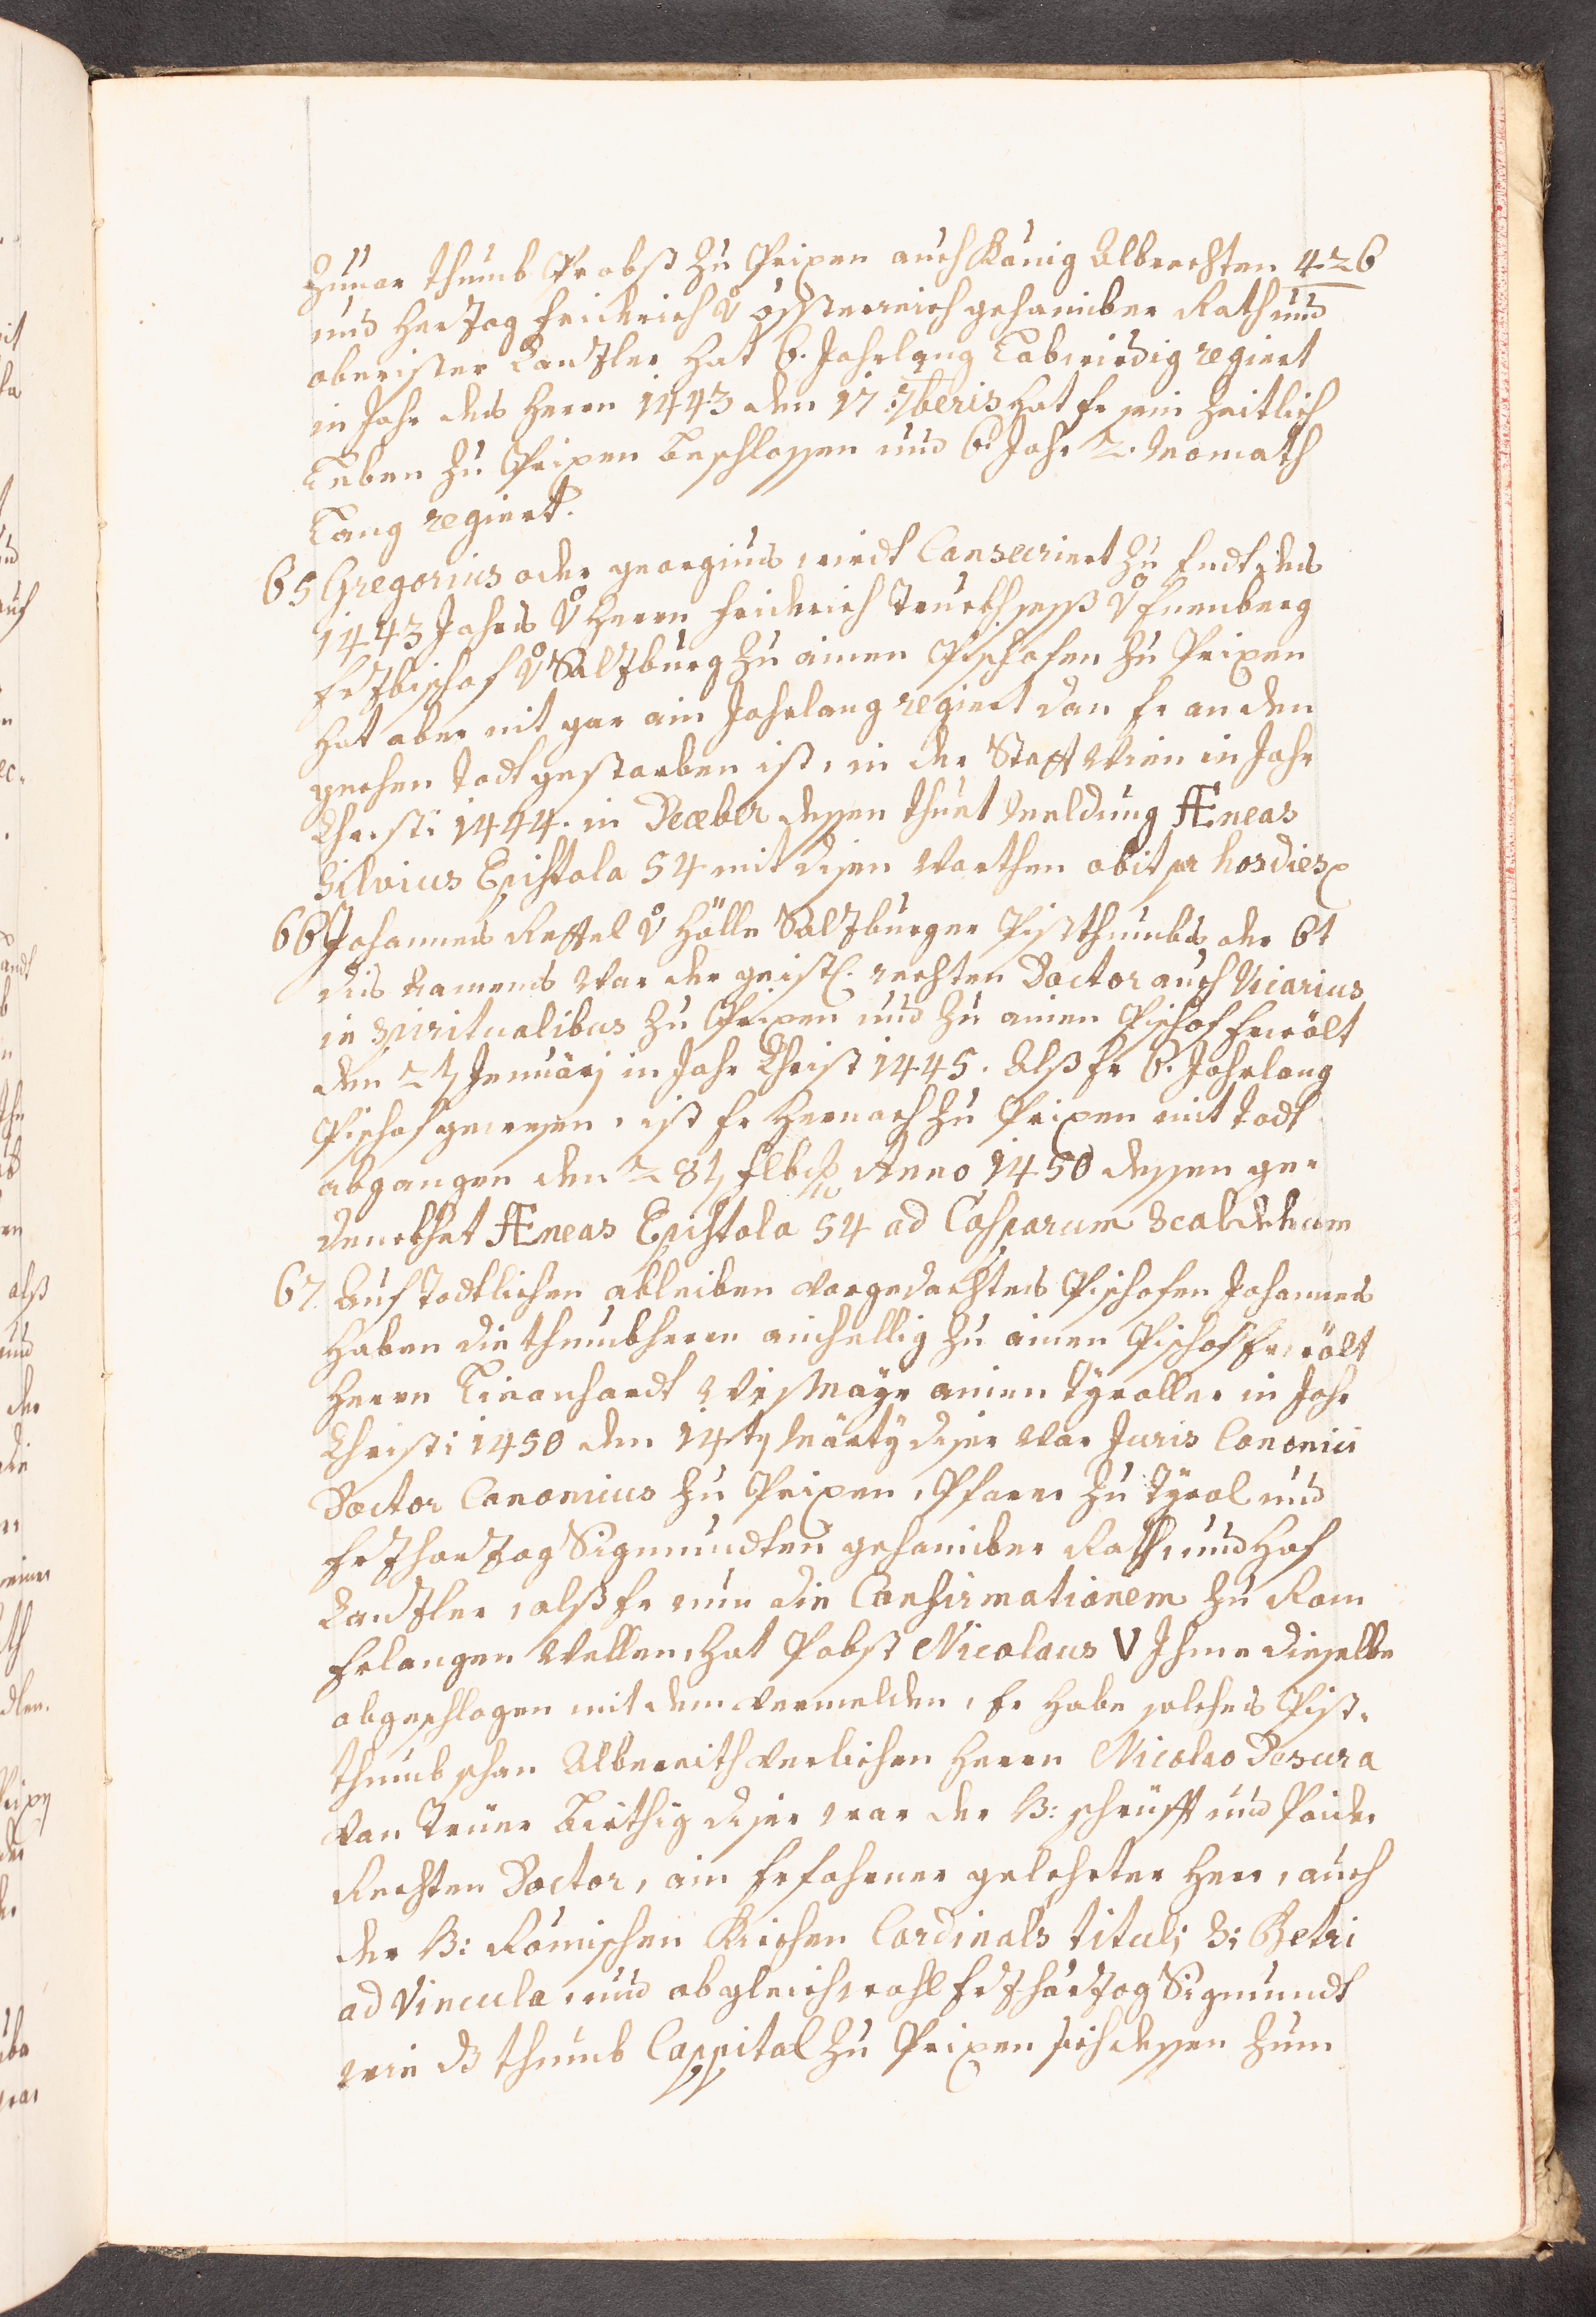 Zuuor thumb Probst zu Prixen auch König Albrechten 426
und Hertzog Friderich v̊ össterreich gehaimber Rath und
oberister Cantzler hat 6. Jahrlang Lobwirdig regiert
in Jahr des Herrn 1443 den 17. 7beris hat Er sein Zeitlich
Leben zu Prixen beschlossen und 6. Jahr 2. Monnath
Lang regiert.
65 Gregorius oder georgius, wirdt Consecriert zu Endt des
1443 Jahrs v̊ Herrn Friderich Truckhsess v̊ Emenberg
Ertzbischof v̊ Saltzburg zu ainen Pischofen zu Prixen
hat aber nit gar ain Jahrlang regiert dan Er an den
gechen Todt gestorben ist, in der Statt Wien in Jahr
Christi 1444. in Decēber dessen thuet Meldung Æneas
Silvius Epistola 54 mit disen Worthen obijt per hos dies
66 Johannes Rettel v̊ Hölle Saltzburger Pistthumbs der 6t
dis Namens War der geistl. rechten Doctor auch Vicarius
in Spiritualibus zu Prixen und zu ainen Pischof Erwölt
den 27 Jenuärj in Jahr Christi 1445. Alss Er 6. Jahrlang
Pischof gewesen, ist Er Hernach zu Prixen mit Todt
abgangen den 28t Febr Anno 1450 dessen ge-
denckhet Æneas Epistola 54 ad Casparum
67. Auf Todtlichen ableiben vorgedachtes Pischofen Johannes
haben die thumbherrn ainhellig zu ainen Pischof Erwölt
Herrn Lieonhardt WisMayr ainen Tyroller in Jahr
Christi 1450 den 14t Märtÿ diser War Juris Cononici
Doctor Canonicus zu Prixen, Pfarrer zu Tyrol und
Ertzhertzog Sigmundten gehaimber Rath, und Hof
Cantzler, alss Er nun die Confirmationem zu Rom
Erlangen Wellen, hat Pobst Nicolaus V Jhme dieselbe
abgeschlagen mit dem vermelden, Er habe solches Pist-
thumb schon Alberaith verlichen Herrn Nicolao Decusa
von Trüer birthig diser war der H: schrüfft und Paider
Rechten Doctor, ain Erfahrner gelehrter Herr, auch
der H: Römischen Kirchen Cordinals tituli S: Petri
ad Vincula, und obgleichwohl Ertzhertzog Sigmundt
wie dz thumb Cappitol zu Prixen sich dessen zum